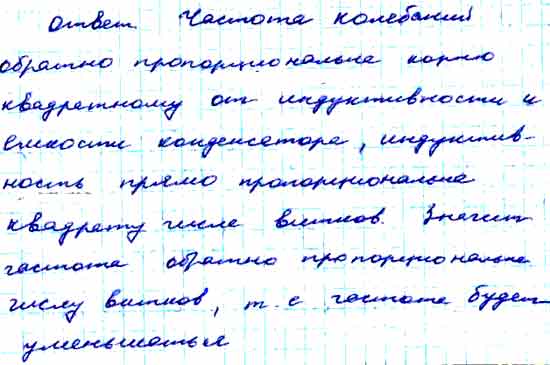 ответ Частота колебаний
обратно пропорциональна корню
квадратному от индуктивности и
емкости конденсатора, индуктив-
ность прямо пропорциональна
квадрату числа витков. Значит
частота обратно пропорциональна
числу витков, т. е частота будет
уменьшаться